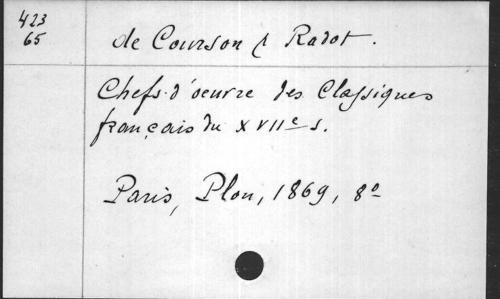 423
65
de Courson & Radot.
Chefs-d'oeuvre des Classiques
français du XVIIe s.
Paris, Plon, 1869, 8º